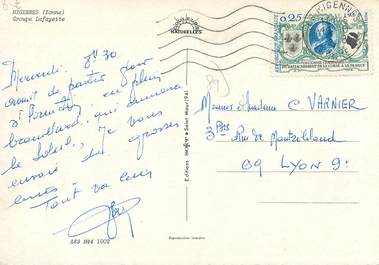 MIGENNES (Yonne)
Groupe Lafayette
NATURELLES
MIGENNES
0,25
RATTACHEMENT DE LA CORSE A LA FRANCE
Mercredi 8h30
avant de partir pour
en plein
brouillard, qui amènera
le Soleil, je vous
envoie de grosses
Tout va bien
Monsieur Madame C. VARNIER
3 bis Rue de
69 LYON 9e
Editions
Saint Maur (94)
A89 H44 1002
Reproduction interdite